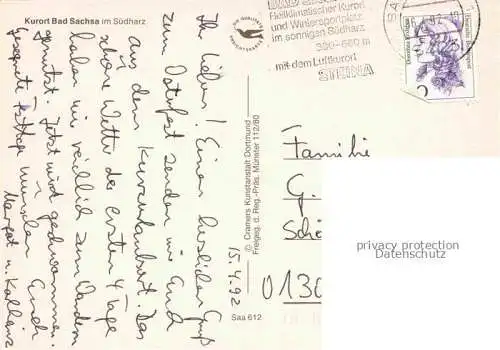 Kurort Bad Sachsa im Südharz
Ihr Lieben! Einen herzlichen Gruß
zum Osterfest senden wir Euch
aus dem Kurzurlaubsort. Das
schöne Wetter der ersten 4 Tage
haben wir reichlich zum Wandern
genutzt. Jetzt wird geschwommen.
Gesegnete Festtage wünschen Euch
Margot u. Karlheinz
15.4.92
DIE QUALITÄTS
ANSICHTSKARTE
© Cramers Kunstanstalt Dortmund
Freigeg. d. Reg.-Präs. Münster 112/80
Saa 612
BAD
Heilklimatischer Kurort
und Wintersportplatz
im sonnigen Südharz
360-660 m
...mit dem Luftkurort
STEINA
Familie
G.
0130
privacy protection
VEREDELMARKT.DE